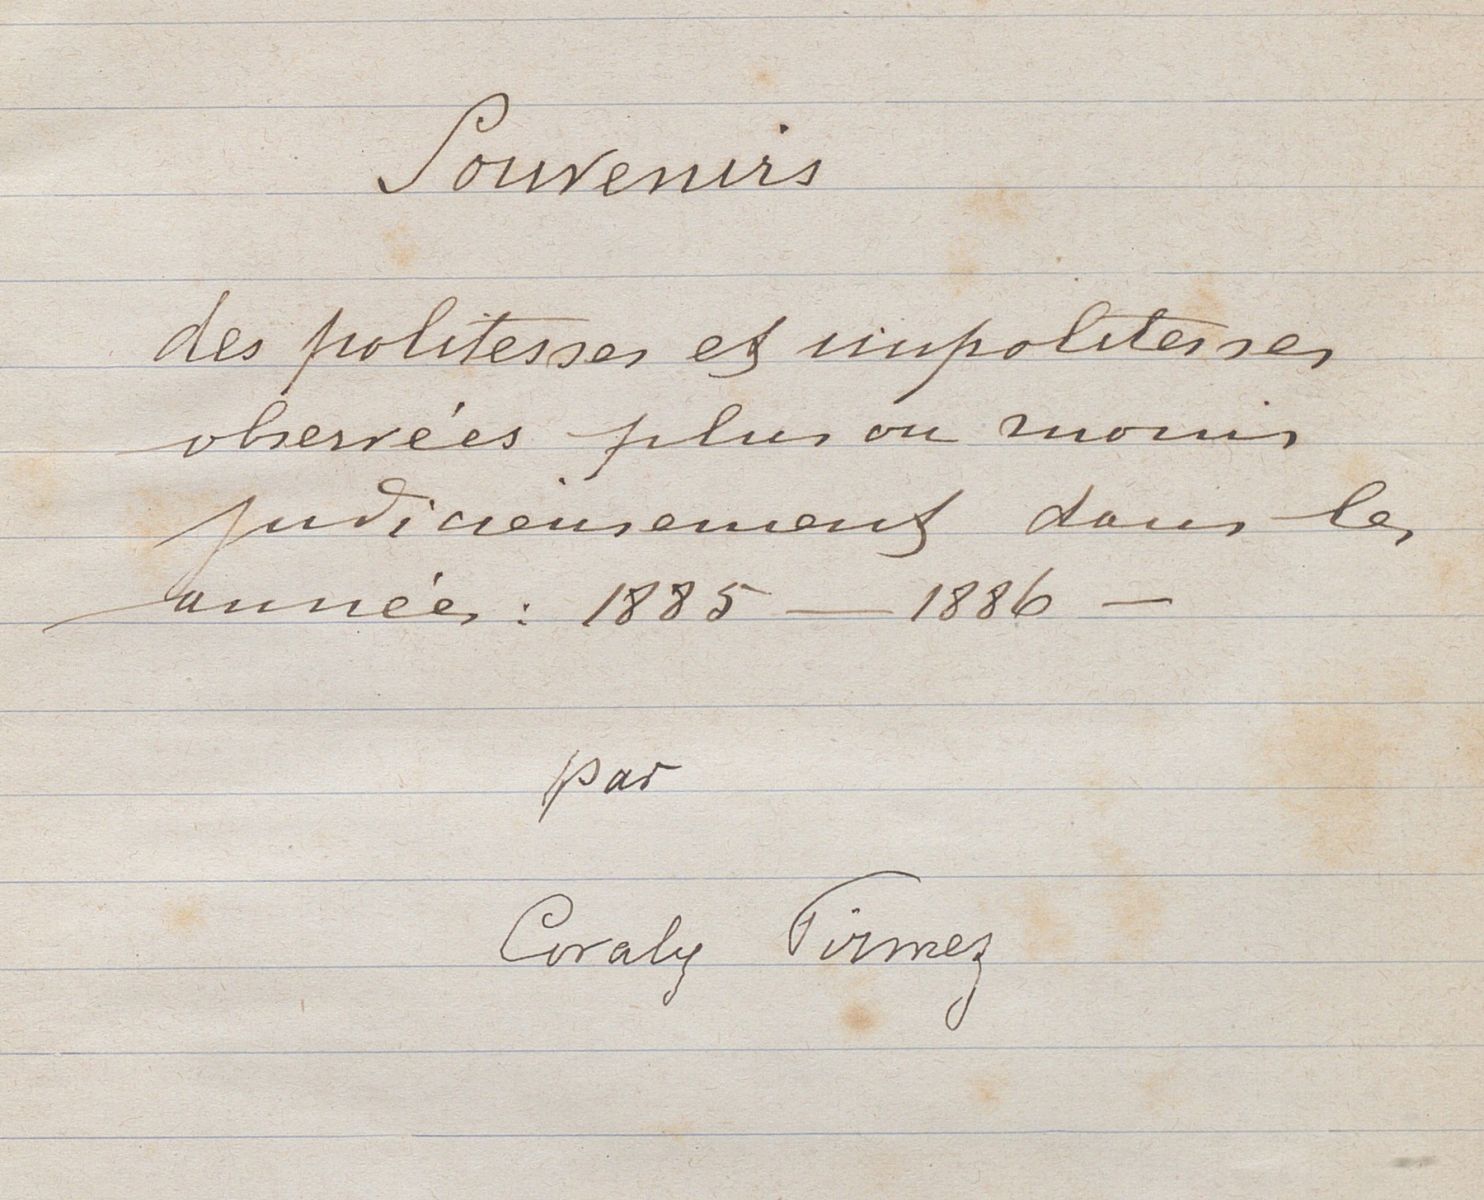 Souvenirs
des politesses et impolitesses
observées plus ou moins
judicieusement dans les
années : 1885 — 1886 —
par
Coraly Firmez